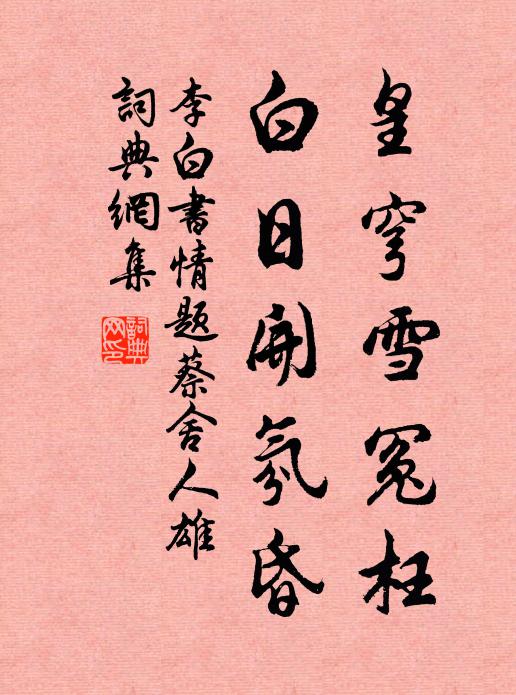 皇穹雪冤枉
白日開氛昏
李白書情題蔡舍人雄
詞典網集
詞典網印